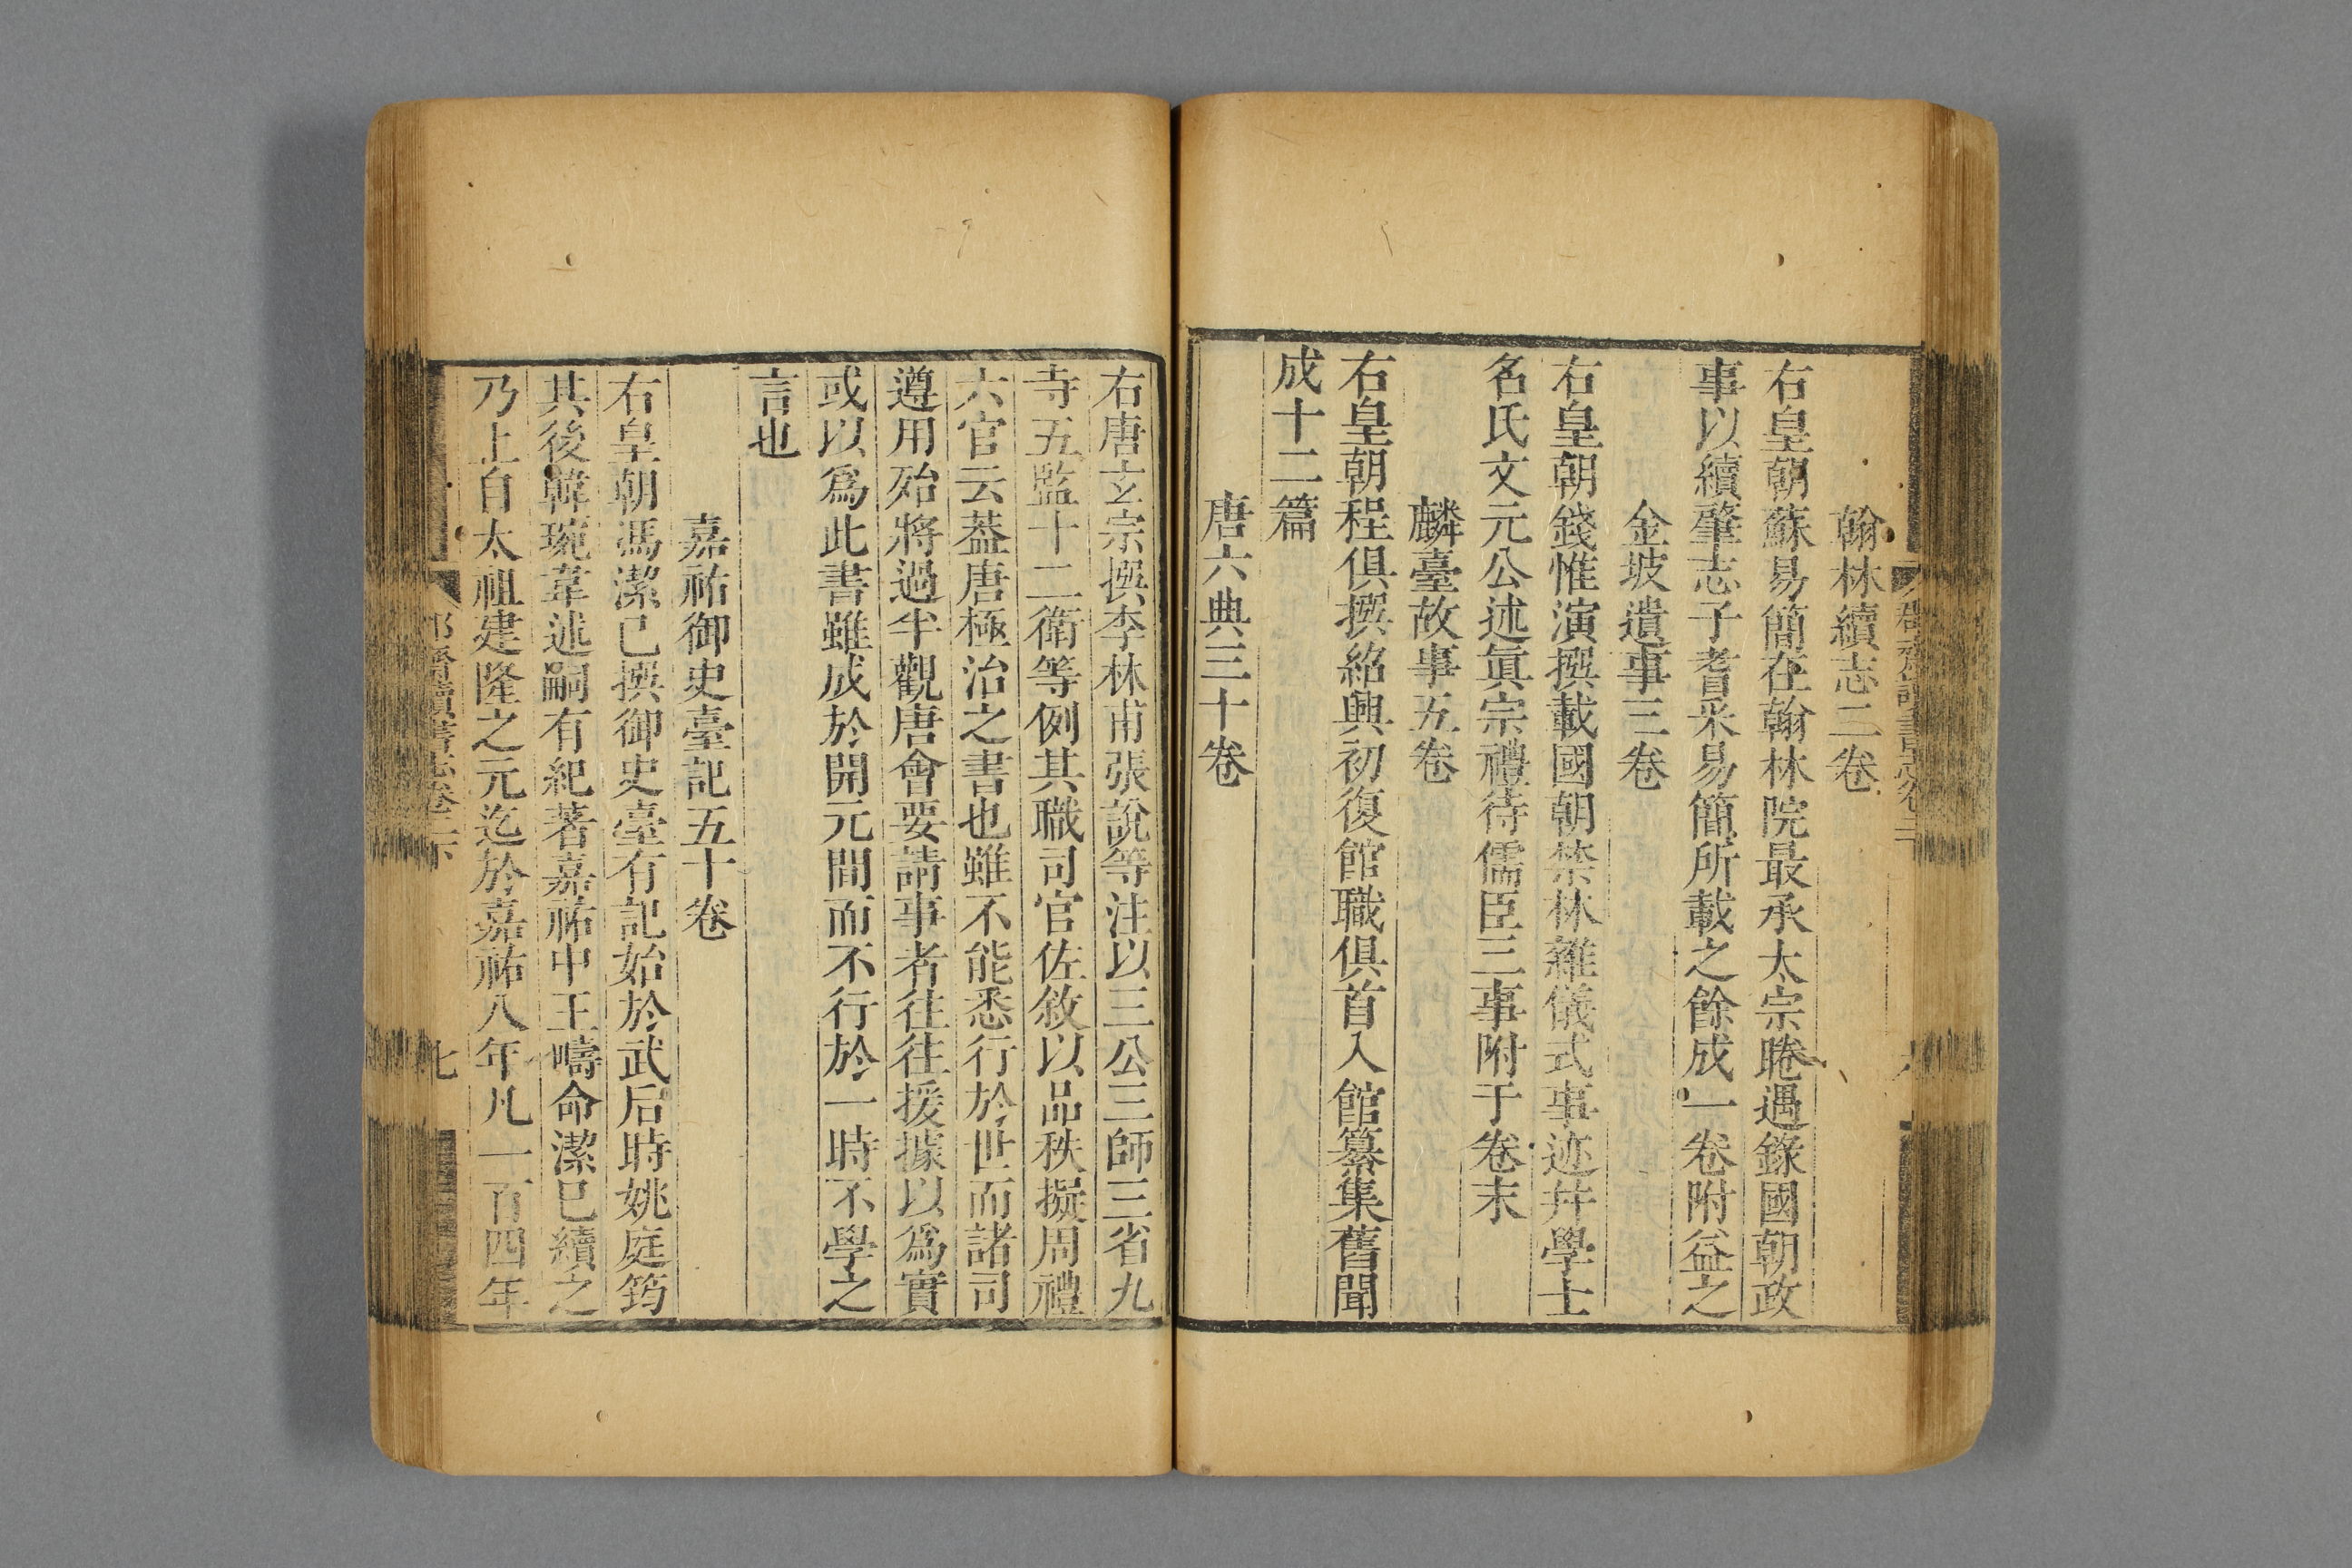 翰林續志二卷
右皇朝蘇易簡在翰林院最承太宗睠遇錄國朝政
事以續肇志子耆采易簡所載之餘成一卷附益之
金坡遺事三卷
右皇朝錢惟演撰載國朝禁林雜儀式事迹幷學士
名氏文元公述眞宗禮待儒臣三事附于卷末
麟臺故事五卷
右皇朝程俱撰紹興初復館職俱首入館纂集舊聞
成十二篇
唐六典三十卷
右唐玄宗撰李林甫張說等注以三公三師三省九
寺五監十二衛等例其職司官佐敘以品秩擬周禮
六官云葢唐極治之書也雖不能悉行於世而諸司
遵用殆將過半觀唐會要請事者往往援據以爲實
或以爲此書雖成於開元間而不行於一時不學之
言也
嘉祐御史臺記五十卷
右皇朝馮潔已撰御史臺有記始於武后時姚庭筠
其後韓琬韋述嗣有紀著嘉祐中王疇命潔已續之
乃上自太祖建隆之元迄於嘉祐八年凡一百四年
七